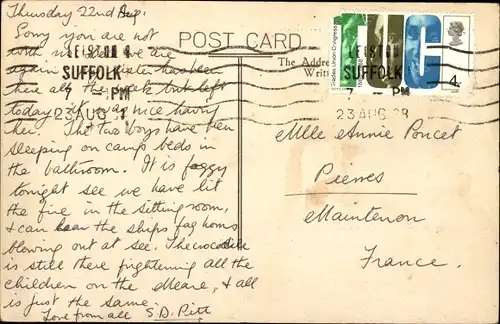 Thursday 22nd Aug.
Sorry you are not
with us as we are
again. has been
here all the week but left
today it was nice having
her. The two boys have been
sleeping on camp beds in
the bathroom. It is foggy
tonight see we have lit
the fire in the sitting room,
& can hear the ships fog horns
blowing out at see. The crocodile
is still there frightening all the
children on the Meare, & all
is just the same.
Love from all S.D. Pitt
POST CARD
The Addre
Writi
LEISTON
SUFFOLK
PM
23 AUG
Trades Union Congress
TUC
4d
LEISTON
SUFFOLK
7 PM
23 AUG
Mlle Annie Poncet
Pierres
Maintenon
France.